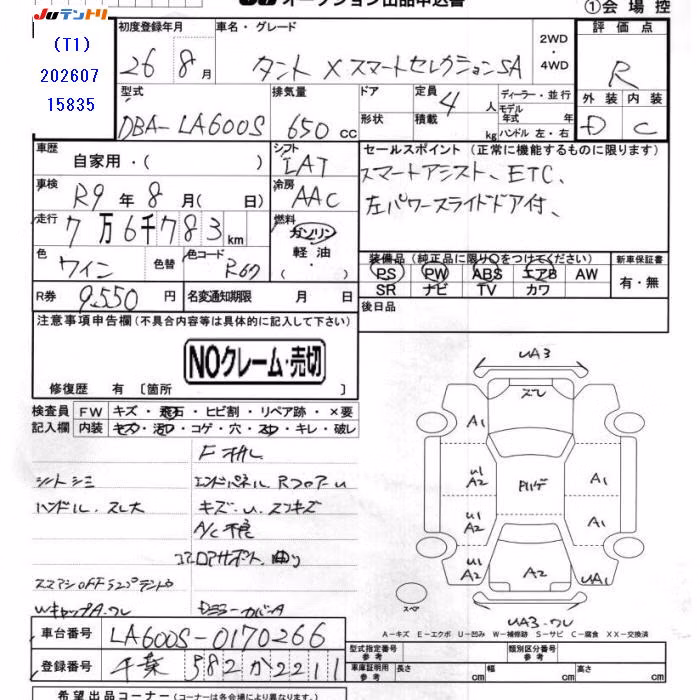 JUテントリ オークション出品申込書 ①会場控
(T1)
202607
15835
初度登録年月 車名・グレード 2WD・4WD 評価点
26 8月 タント X スマートセレクションSA R
型式 排気量 ドア 定員 ディーラー・並行 外装 内装
DBA-LA600S 650cc 形状 積載 4人 kg モデル年式 年 ハンドル 左・右 D C
車歴 シフト セールスポイント（正常に機能するものに限ります）
自家用・( ) IAT スマートアシスト、ETC、
車検 R9年8月( 日) 冷房 AAC 左パワースライドドア付、
走行 7万6千783km 燃料 ガソリン 軽油 ( )
色 ワイン 色替 色コード R67
装備品（純正品に限り○をつけてください） 新車保証書
PS PW ABS エアB AW 有・無
SR ナビ TV カワ
R券 9,550円 名変通知期限 月 日 後日品
注意事項申告欄（不具合内容等は具体的に記入して下さい）
NOクレーム・売切
修復歴 有〔箇所 〕
検査員 FW キズ・飛石・ヒビ割・リペア跡・×要
記入欄 内装 キズ・汚・コゲ・穴・・キレ・破レ
シートシミ エンドパネル RフロアーU
ハンドル スレ大 キズ・U、
A/C不良
コアロアサポート 曲り
WキャップA・ワレ DミラーカバーA
UA3
A1
U1
A2
A1
U1
A2
A1
U1
A2
A2
UA1
スペア
UA3・ワレ
A－キズ E－エクボ U－凹み W－補修跡 S－サビ C－腐食 XX－交換済
車台番号 LA600S-0170266
登録番号 千葉 582か2211
型式指定番号 参考 類別区分番号 参考
車庫証明用 参考 長さ cm 幅 cm 高さ cm
希望出品コーナー（コーナーは各会場により異なります。）